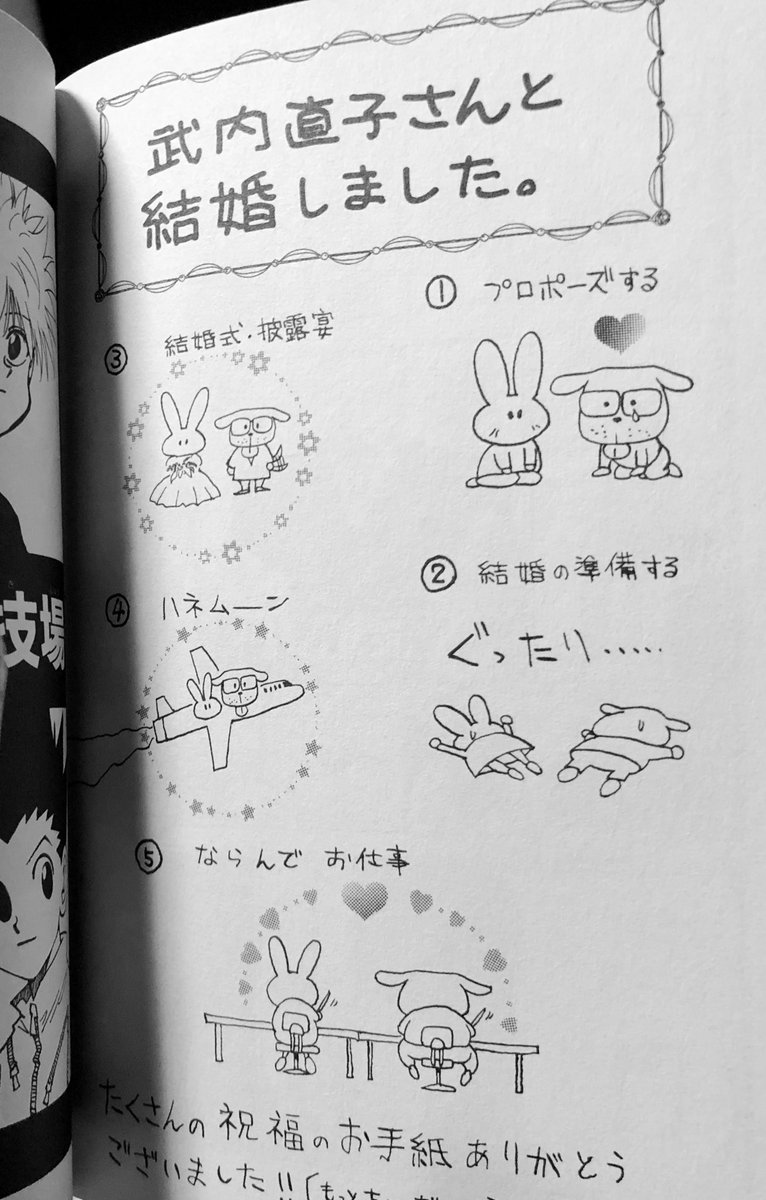 武内直子さんと
結婚しました。
① プロポーズする
② 結婚の準備する
ぐったり……
③ 結婚式・披露宴
④ ハネムーン
⑤ ならんで お仕事
たくさんの祝福のお手紙ありがとう
ございました!!
技場